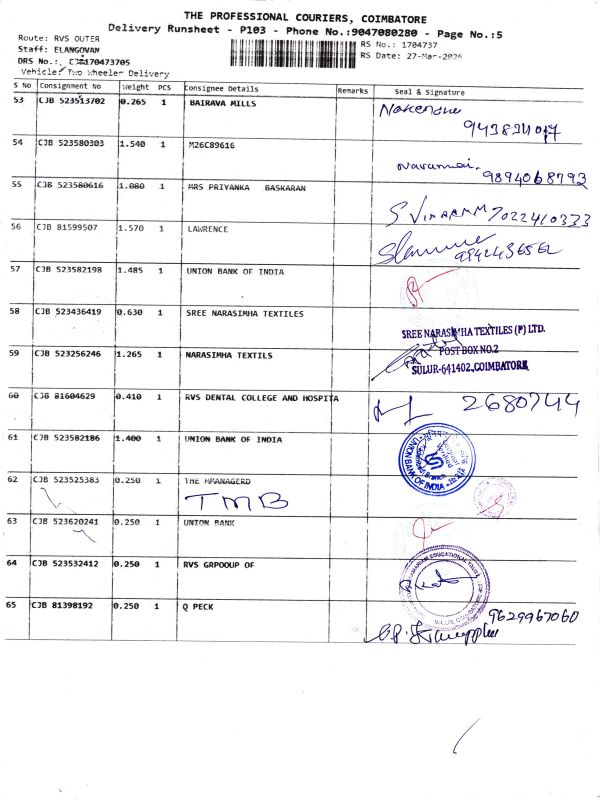 THE PROFESSIONAL COURIERS, COIMBATORE
Delivery Runsheet - P103 - Phone No.:9047080280 - Page No.:5
Route: RVS OUTER
RS No.: 1704737
Staff: ELANGOVAN
RS Date: 27-Mar-2026
DRS No.: CJB170473705
Vehicle: Two Wheeler Delivery
S No Consignment No Weight PCS Consignee Details Remarks Seal & Signature
53 CJB 523513702 0.265 1 BAIRAVA MILLS
54 CJB 523580303 1.540 1 M26C89616
9894068793
55 CJB 523580616 1.080 1 MRS PRIYANKA BASKARAN
7022410333
56 CJB 81599507 1.570 1 LAWRENCE
57 CJB 523582198 1.485 1 UNION BANK OF INDIA
58 CJB 523436419 0.630 1 SREE NARASIMHA TEXTILES
SREE NARASIMHA TEXTILES (P) LTD.
POST BOX NO.2
SULUR-641402, COIMBATORE
59 CJB 523256246 1.265 1 NARASIMHA TEXTILS
60 CJB 81604629 0.410 1 RVS DENTAL COLLEGE AND HOSPITA
2680744
61 CJB 523582186 1.400 1 UNION BANK OF INDIA
UNION BANK OF INDIA
62 CJB 523525383 0.250 1 THE MRANAGERD
TMB
63 CJB 523620241 0.250 1 UNION BANK
64 CJB 523532412 0.250 1 RVS GRPOOUP OF
65 CJB 81398192 0.250 1 Q PECK
9629967060